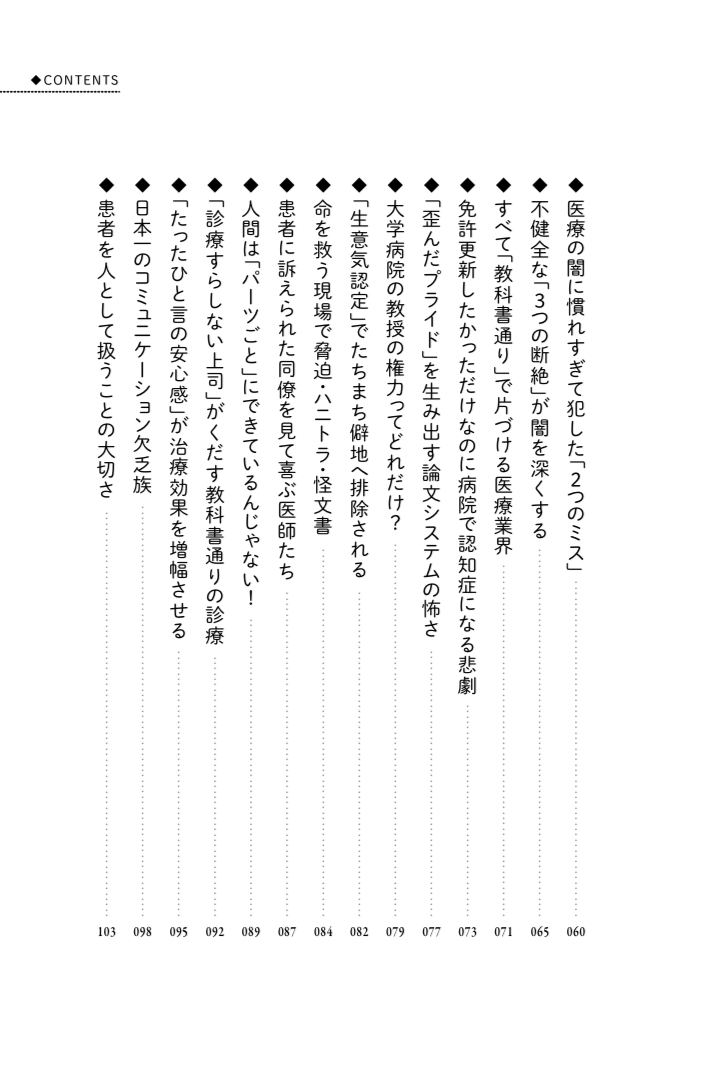 ◆CONTENTS
◆ 医療の闇に慣れすぎて犯した「2つのミス」 060
◆ 不健全な「3つの断絶」が闇を深くする 065
◆ すべて「教科書通り」で片づける医療業界 071
◆ 免許更新したかっただけなのに病院で認知症になる悲劇 073
◆ 「歪んだプライド」を生み出す論文システムの怖さ 077
◆ 大学病院の教授の権力ってどれだけ？ 079
◆ 「生意気認定」でたちまち僻地へ排除される 082
◆ 命を救う現場で脅迫・ハニトラ・怪文書 084
◆ 患者に訴えられた同僚を見て喜ぶ医師たち 087
◆ 人間は「パーツごと」にできているんじゃない！ 089
◆ 「診療すらしない上司」がくだす教科書通りの診療 092
◆ 「たったひと言の安心感」が治療効果を増幅させる 095
◆ 日本一のコミュニケーション欠乏族 098
◆ 患者を人として扱うことの大切さ 103